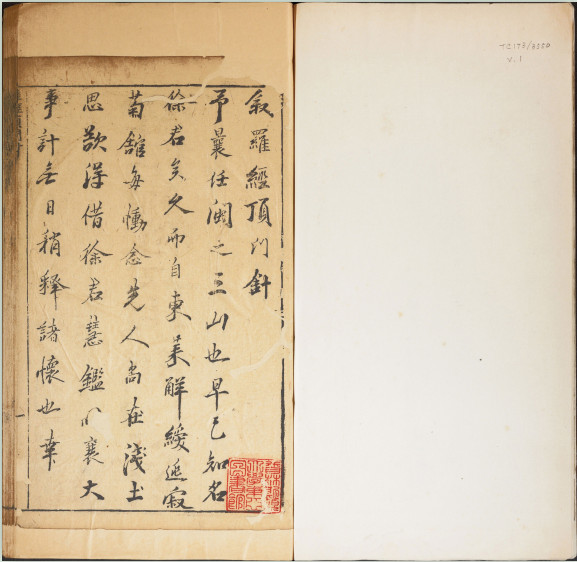 叙羅經頂門針
予曩任閩之三山也早已知名
徐君矣久而自東萊解綬寂
菊舘每慟念先人尚在淺土
思欲得借徐君慧鑑以襄大
事計無日稍釋諸懷也幸
V.1